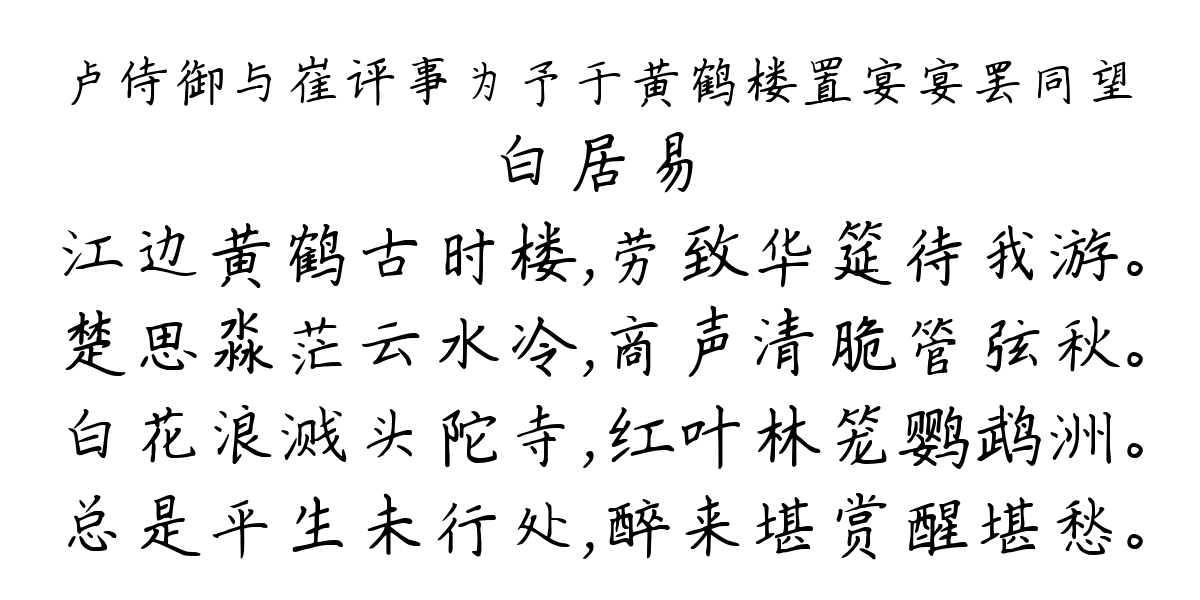 卢侍御与崔评事为予于黄鹤楼置宴宴罢同望
白居易
江边黄鹤古时楼,劳致华筵待我游。
楚思淼茫云水冷,商声清脆管弦秋。
白花浪溅头陀寺,红叶林笼鹦鹉洲。
总是平生未行处,醉来堪赏醒堪愁。